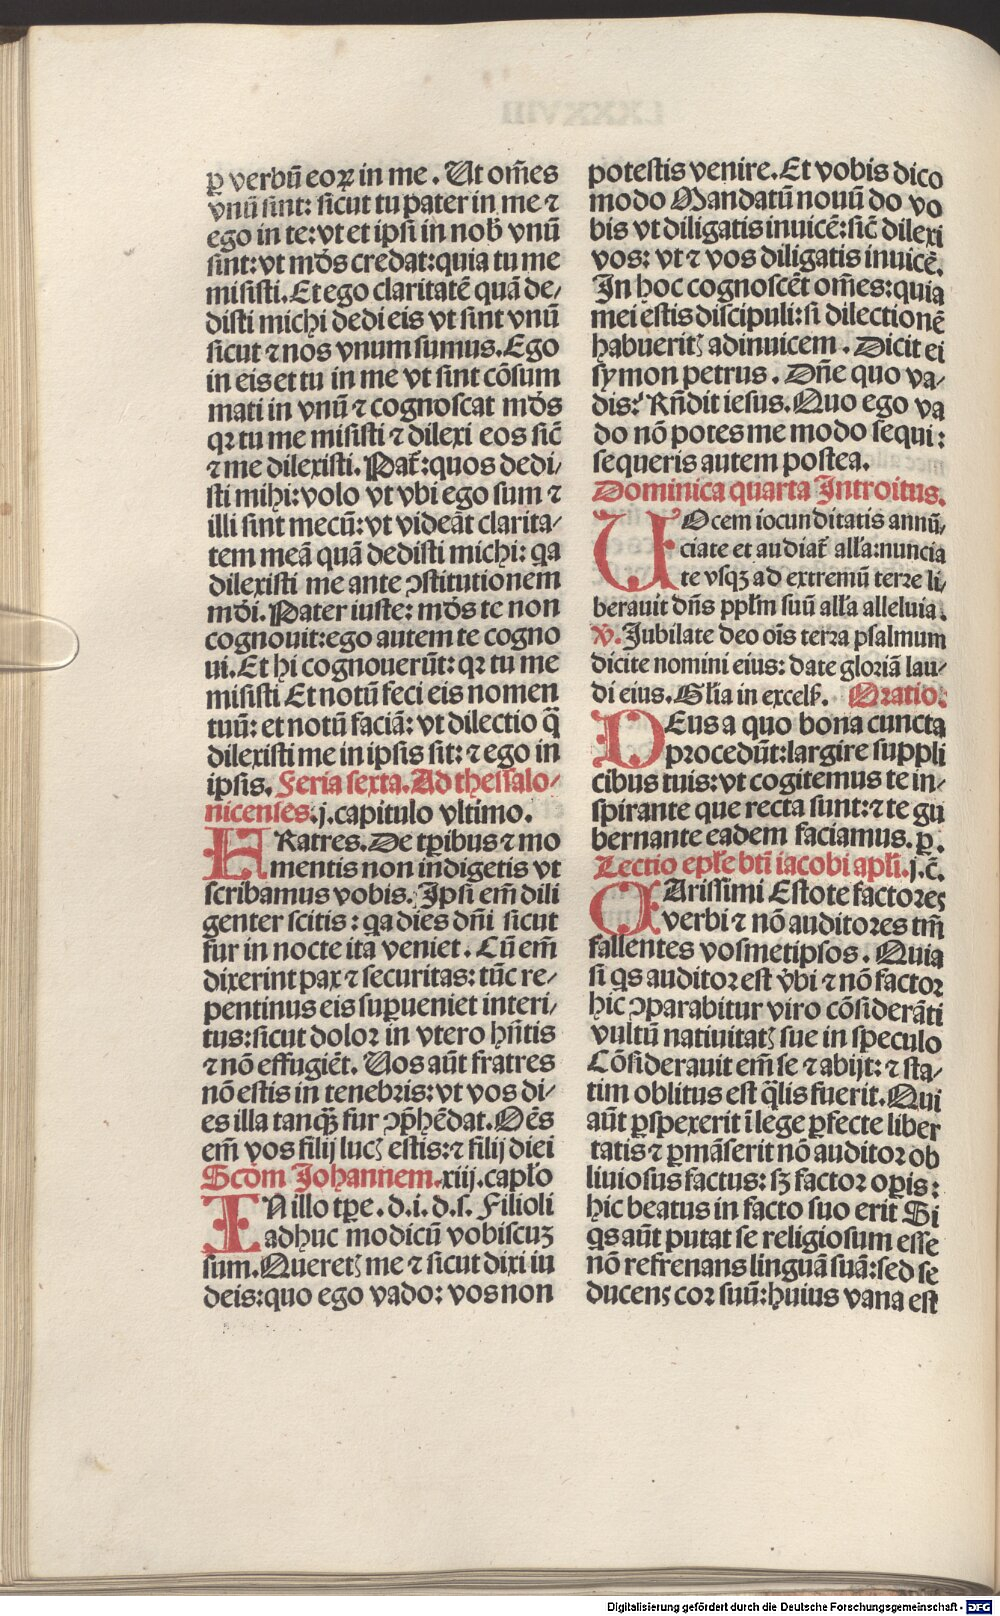 ꝑ verbū eoꝝ in me. Ut om̄es
vnū sint: sicut tu pater in me ⁊
ego in te: vt et ipsi in nob̄ vnū
sint: vt mūds credat: quia tu me
misisti. Et ego claritatē quā de/
disti michi dedi eis vt sint vnū
sicut ⁊ nos vnum sumus. Ego
in eis et tu in me vt sint cōsum
mati in vnū ⁊ cognoscat mūds
qꝛ tu me misisti ⁊ dilexi eos sic̄
⁊ me dilexisti. Pat̄: quos dedi/
sti mihi: volo vt vbi ego sum ⁊
illi sint mecū: vt videāt clarita/
tem meā quā dedisti michi: qa
dilexisti me ante ↄstitutionem
mūdi. Pater iuste: mūds te non
cognouit: ego autem te cogno
ui. Et hi cognouerūt: qꝛ tu me
misisti Et notū feci eis nomen
tuū: et notū faciā: vt dilectio q̄
dilexisti me in ipsis sit: ⁊ ego in
ipsis. Feria sexta. Ad thessalo-
nicenses. j. capitulo vltimo.
FRatres. De tꝑibus ⁊ mo
mentis non indigetis vt
scribamus vobis. Ipsi em̄ dili
genter scitis: qa dies dn̄i sicut
fur in nocte ita veniet. Cū em̄
dixerint pax ⁊ securitas: tūc re/
pentinus eis suꝑueniet interi/
tus: sicut dolor in vtero hn̄tis
⁊ nō effugiēt. Uos aūt fratres
nō estis in tenebris: vt vos di/
es illa tanqꝫ fur ↄp̄hēdat. Oēs
em̄ vos filij lucꝭ estis: ⁊ filij diei
Scd̄m Johannem. xiij. caplo
IN illo tꝑe. d. i. d. s. Filioli
adhuc modicū vobiscuꝫ
sum. Queretꝭ me ⁊ sicut dixi iu
deis: quo ego vado: vos non
potestis venire. Et vobis dico
modo Mandatū nouū do vo
bis vt diligatis inuicē: sic̄ dilexi
vos: vt ⁊ vos diligatis inuicē.
In hoc cognoscēt om̄es: quia
mei estis discipuli: si dilectionē
habueritꝭ adinuicem. Dicit ei
symon petrus. Dn̄e quo va/
dis? Rn̄dit iesus. Quo ego va
do nō potes me modo sequi:
sequeris autem postea.
Dominica quarta Introitus.
UOcem iocunditatis annū/
ciate et audiat̄ alla: nuncia
te vsqꝫ ad extremū terre li/
berauit dn̄s pplm suū alla alleluia.
℣. Jubilate deo oīs terra psalmum
dicite nomini eius: date gloriā lau/
di eius. Glia in excels̄. Oratio.
DEus a quo bona cuncta
procedūt: largire suppli
cibus tuis: vt cogitemus te in/
spirante que recta sunt: ⁊ te gu
bernante eadem faciamus. ꝑ.
Lectio eple bti iacobi apli. j. c̄.
CArissimi Estote factores
verbi ⁊ nō auditores tm̄
fallentes vosmetipsos. Quia
si qs auditor est v̄bi ⁊ nō factor
hic ↄparabitur viro cōsiderāti
vultū natiuitatꝭ sue in speculo
Cōsiderauit em̄ se ⁊ abijt: ⁊ sta/
tim oblitus est q̄lis fuerit. Qui
aūt ꝑspexerit ī lege ꝑfecte liber
tatis ⁊ ꝑmāserit nō auditor ob
liuiosus factus: sꝫ factor oꝑis:
hic beatus in facto suo erit Si
qs aūt putat se religiosum esse
nō refrenans linguā suā: sed se
ducens cor suū: huius vana est
Digitalisierung gefördert durch die Deutsche Forschungsgemeinschaft - DFG